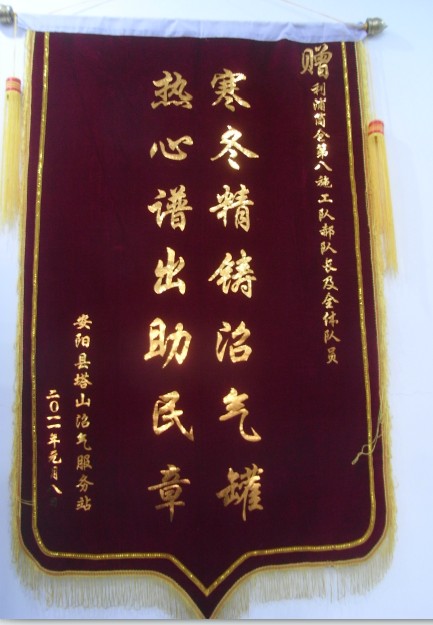 赠利浦筒仓第八施工队郝队长及全体队员
寒冬精铸沼气罐
热心谱出助民章
安阳县塔山沼气服务站
二〇一一年元月八